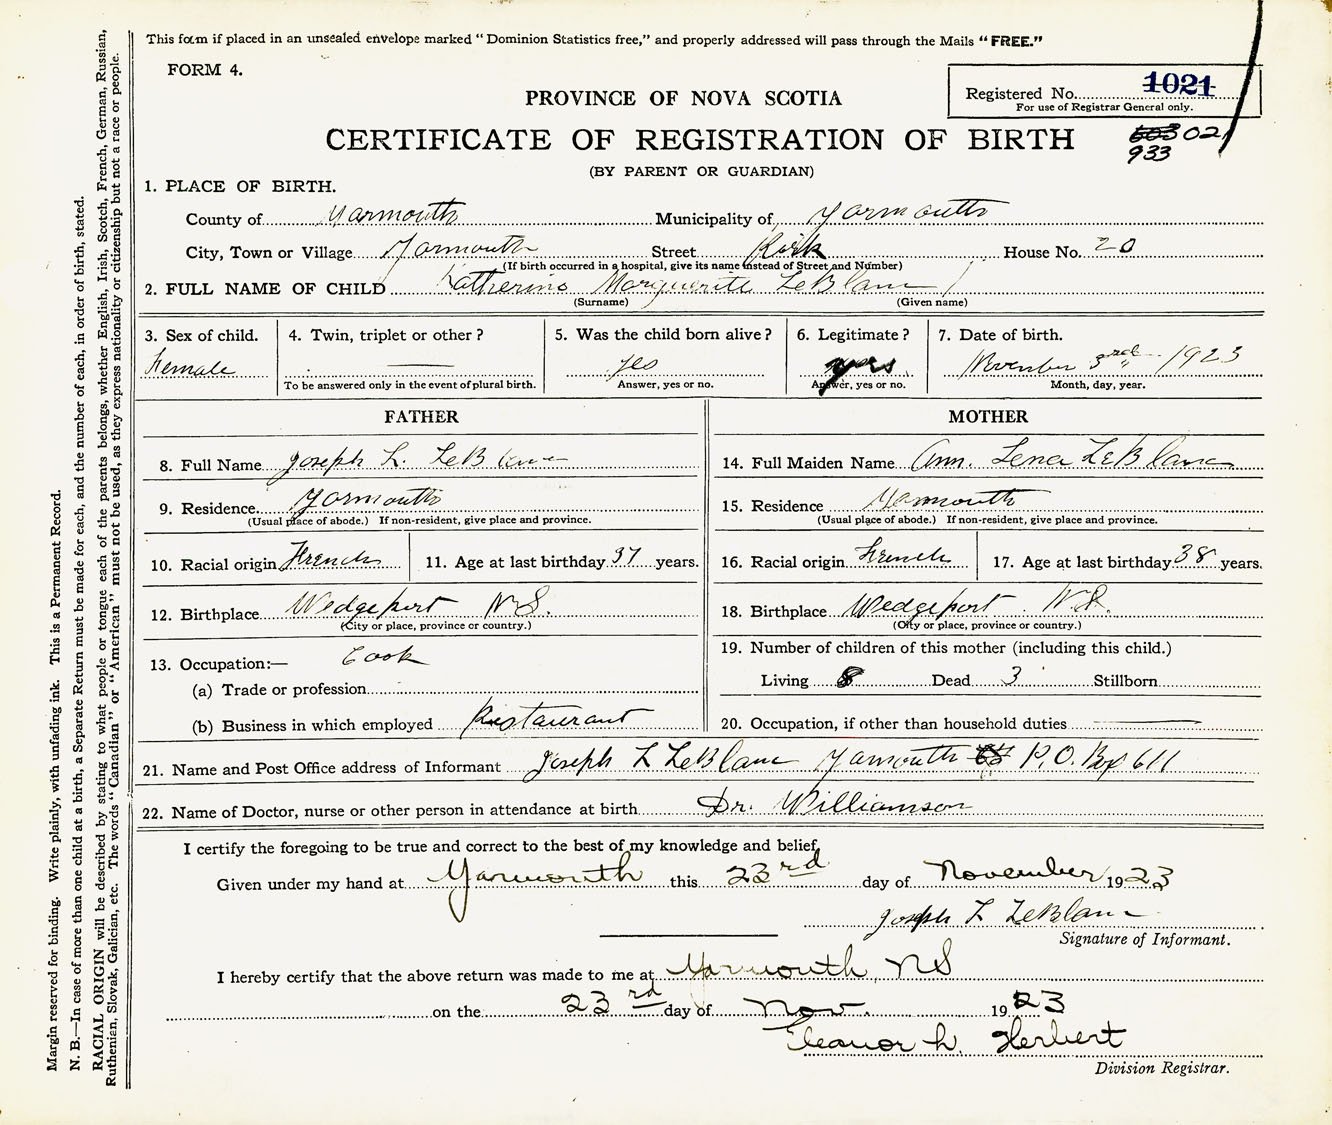 This form if placed in an unsealed envelope marked “Dominion Statistics free,” and properly addressed will pass through the Mails “FREE.”
FORM 4.
Registered No. 1021
For use of Registrar General only.
PROVINCE OF NOVA SCOTIA
CERTIFICATE OF REGISTRATION OF BIRTH
603 021
933
(BY PARENT OR GUARDIAN)
1. PLACE OF BIRTH.
County of Yarmouth Municipality of Yarmouth
City, Town or Village Yarmouth Street Kirk House No. 20
(If birth occurred in a hospital, give its name instead of Street and Number)
2. FULL NAME OF CHILD Katherine Marguerite LeBlanc
(Surname) (Given name)
3. Sex of child. Female
4. Twin, triplet or other? —
To be answered only in the event of plural birth.
5. Was the child born alive? yes
Answer, yes or no.
6. Legitimate? yes
Answer, yes or no.
7. Date of birth. November 3rd 1923
Month, day, year.
FATHER
8. Full Name Joseph L. LeBlanc
9. Residence Yarmouth
(Usual place of abode.) If non-resident, give place and province.
10. Racial origin French 11. Age at last birthday 37 years.
12. Birthplace Wedgeport N.S.
(City or place, province or country.)
13. Occupation:— Cook
(a) Trade or profession
(b) Business in which employed Restaurant
MOTHER
14. Full Maiden Name Ann. Lena LeBlanc
15. Residence Yarmouth
(Usual place of abode.) If non-resident, give place and province.
16. Racial origin French 17. Age at last birthday 38 years.
18. Birthplace Wedgeport N.S.
(City or place, province or country.)
19. Number of children of this mother (including this child.)
Living 8 Dead 3 Stillborn
20. Occupation, if other than household duties —
21. Name and Post Office address of Informant Joseph L LeBlanc Yarmouth P.O. Box 611
22. Name of Doctor, nurse or other person in attendance at birth Dr. Williamson
I certify the foregoing to be true and correct to the best of my knowledge and belief,
Given under my hand at Yarmouth this 23rd day of November 1923
Joseph L LeBlanc
Signature of Informant.
I hereby certify that the above return was made to me at Yarmouth, NS
on the 23rd day of Nov. 1923
Eleanor L. Herbert
Division Registrar.
Margin reserved for binding. Write plainly, with unfading ink. This is a Permanent Record.
N. B.—In case of more than one child at a birth, a Separate Return must be made for each, and the number of each, in order of birth, stated.
RACIAL ORIGIN will be described by stating to what people or tongue each of the parents belongs, whether English, Irish, Scotch, French, German, Russian,
Ruthenian, Slovak, Galician, etc. The words “Canadian” or “American” must not be used, as they express nationality or citizenship but not a race or people.